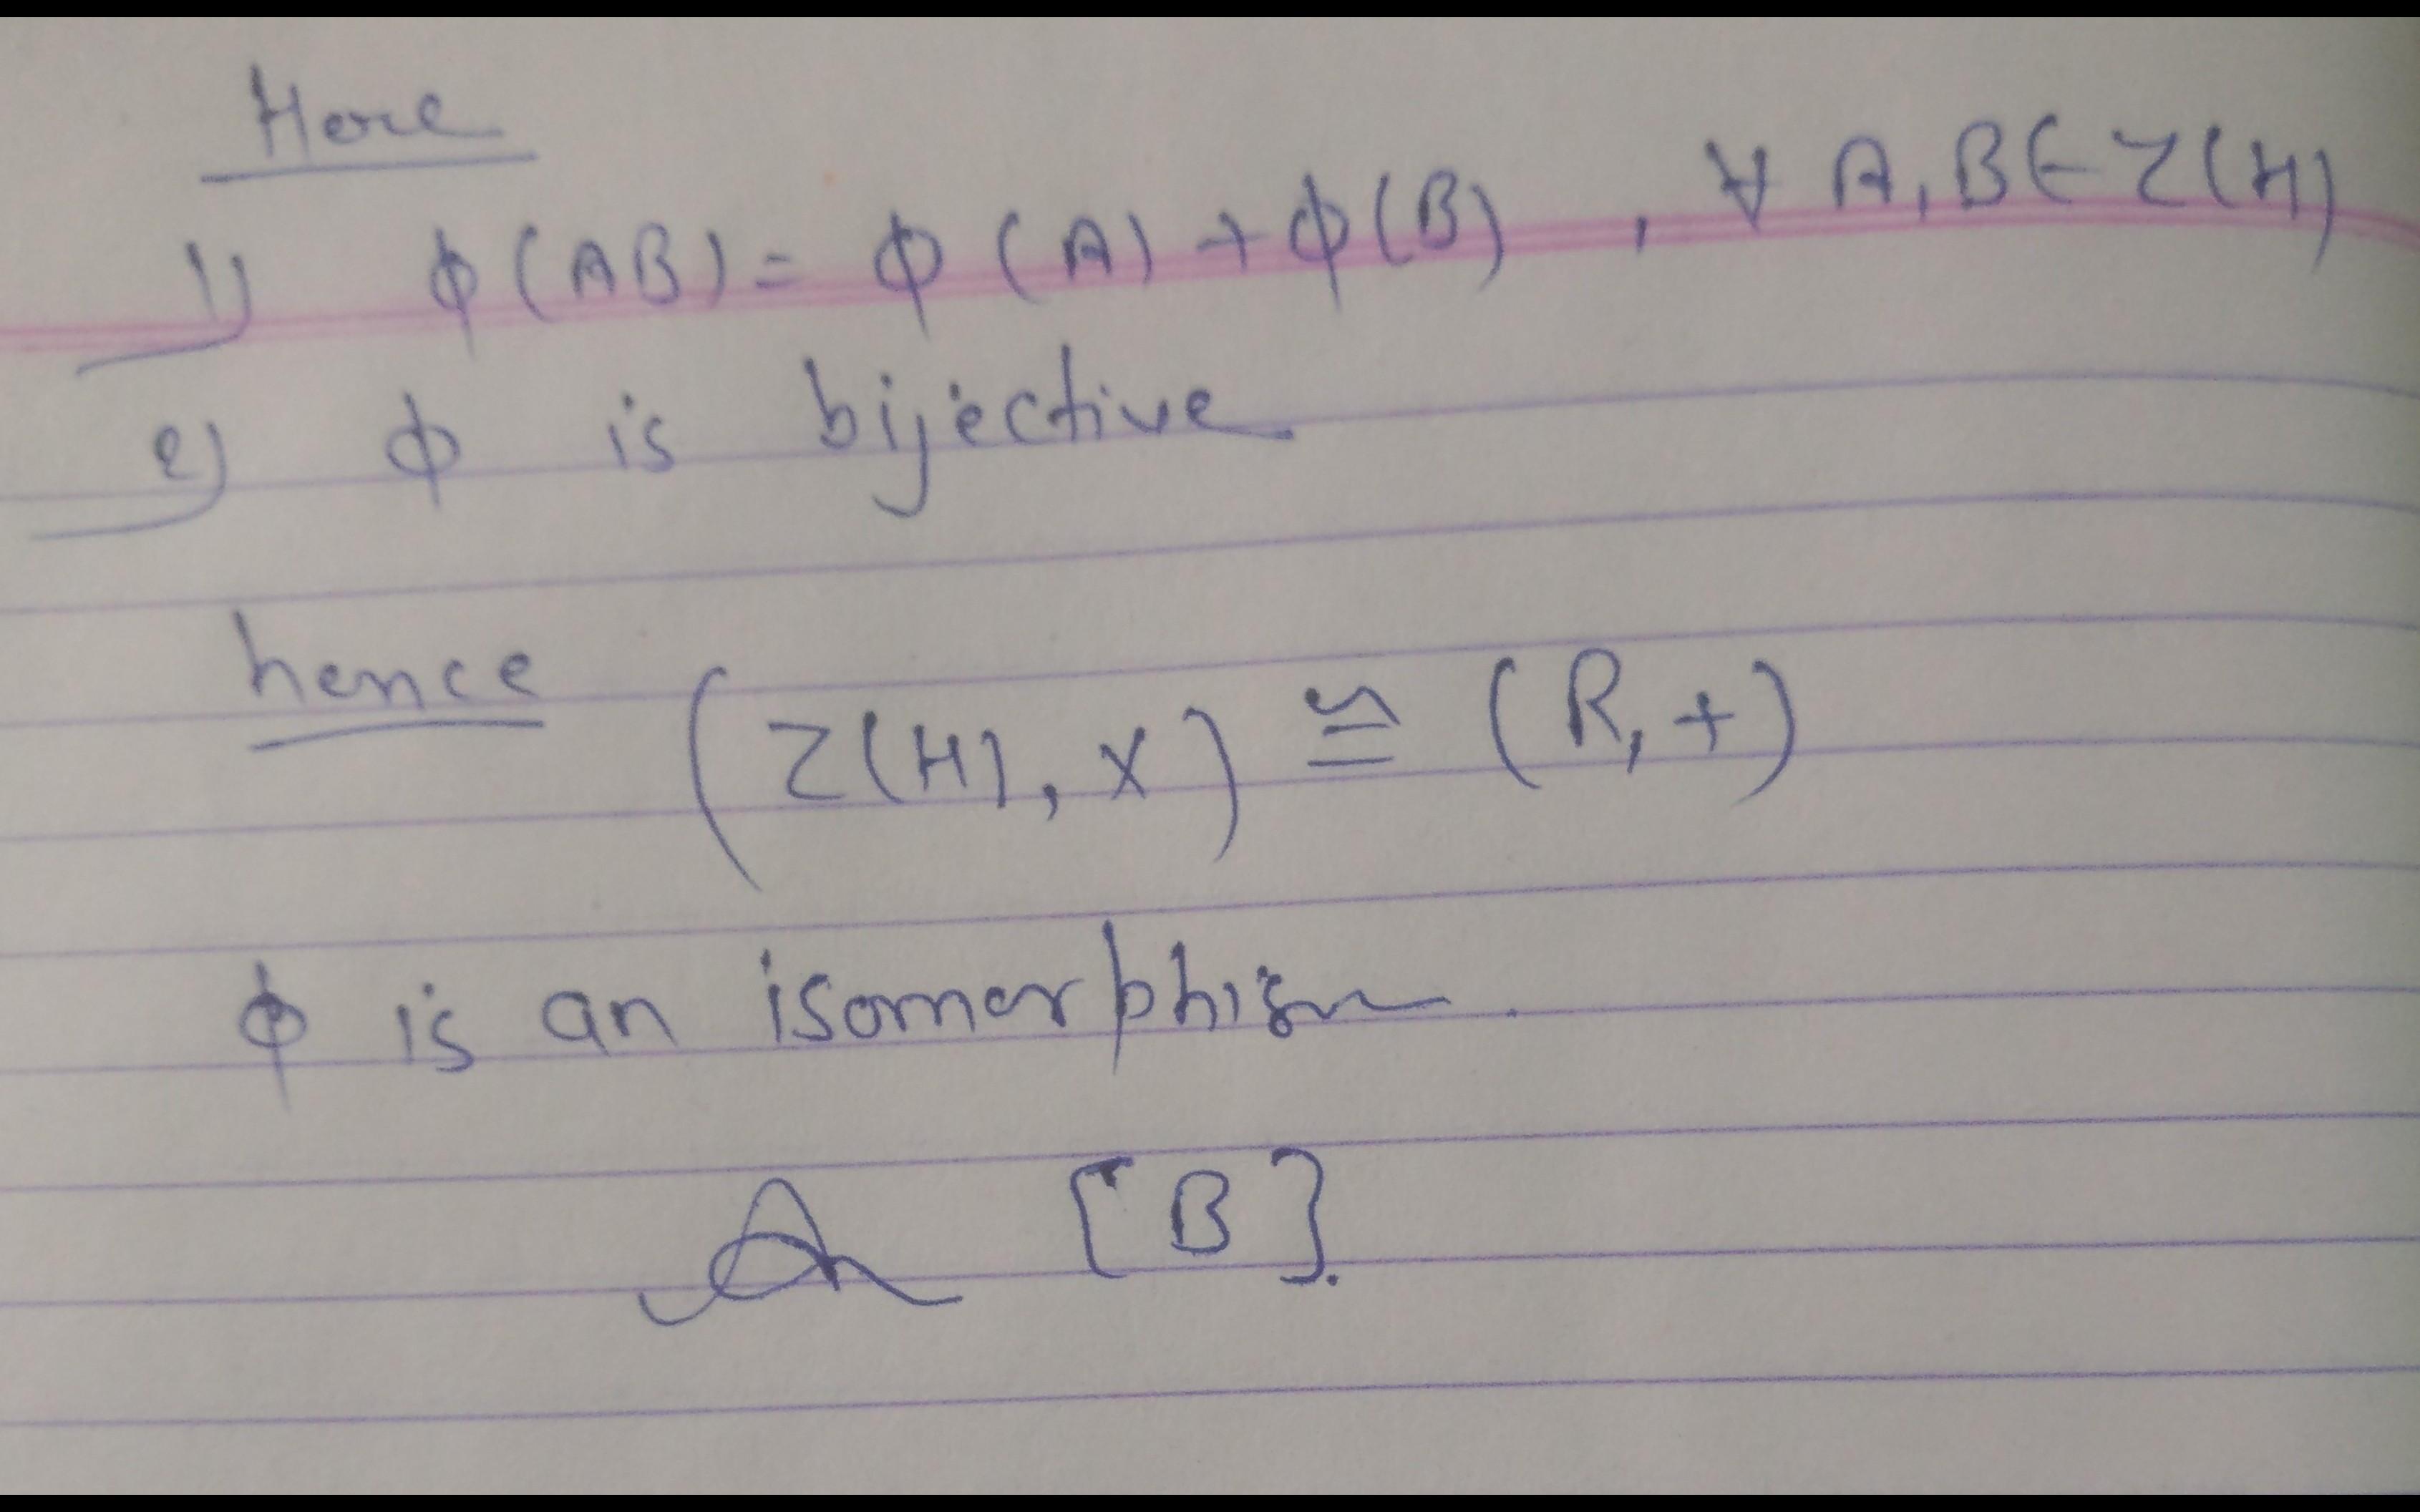 Here
1) ϕ(AB) = ϕ(A) + ϕ(B) , ∀ A, B ∈ Z(H)
2) ϕ is bijective
hence (Z(H), X) ≅ (R, +)
ϕ is an isomorphism.
[B].